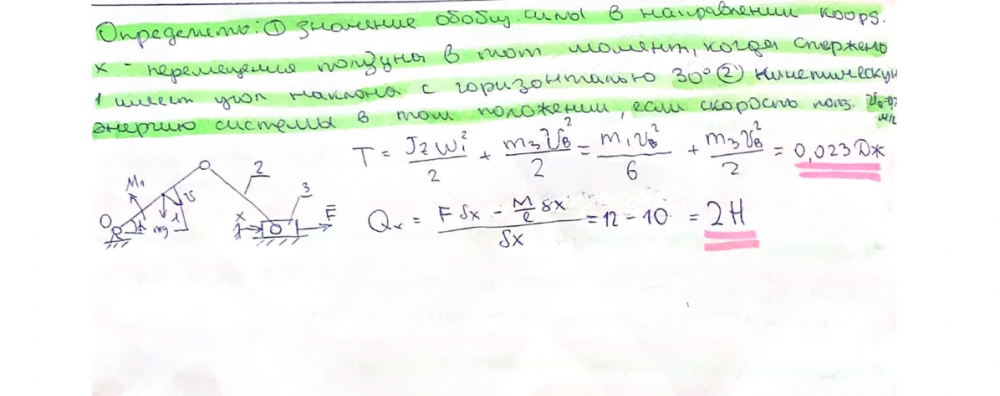 Определить: ① значение обобщ. силы в направлении коорд.
x - перемещения ползуна в тот момент, когда стержень
1 имеет угол наклона с горизонталью 30° ② кинетическую
энергию системы в том положении, если скорость полз.
T = Jz ω₁²/2 + m₃ V_B²/2 = m₁ v_B²/6 + m₃ V_B²/2 = 0,023 Дж
Qx = (F δx - M/ℓ δx)/δx = 12 - 10 = 2 Н
M₁
2
3
O
1
mg
x
F̄